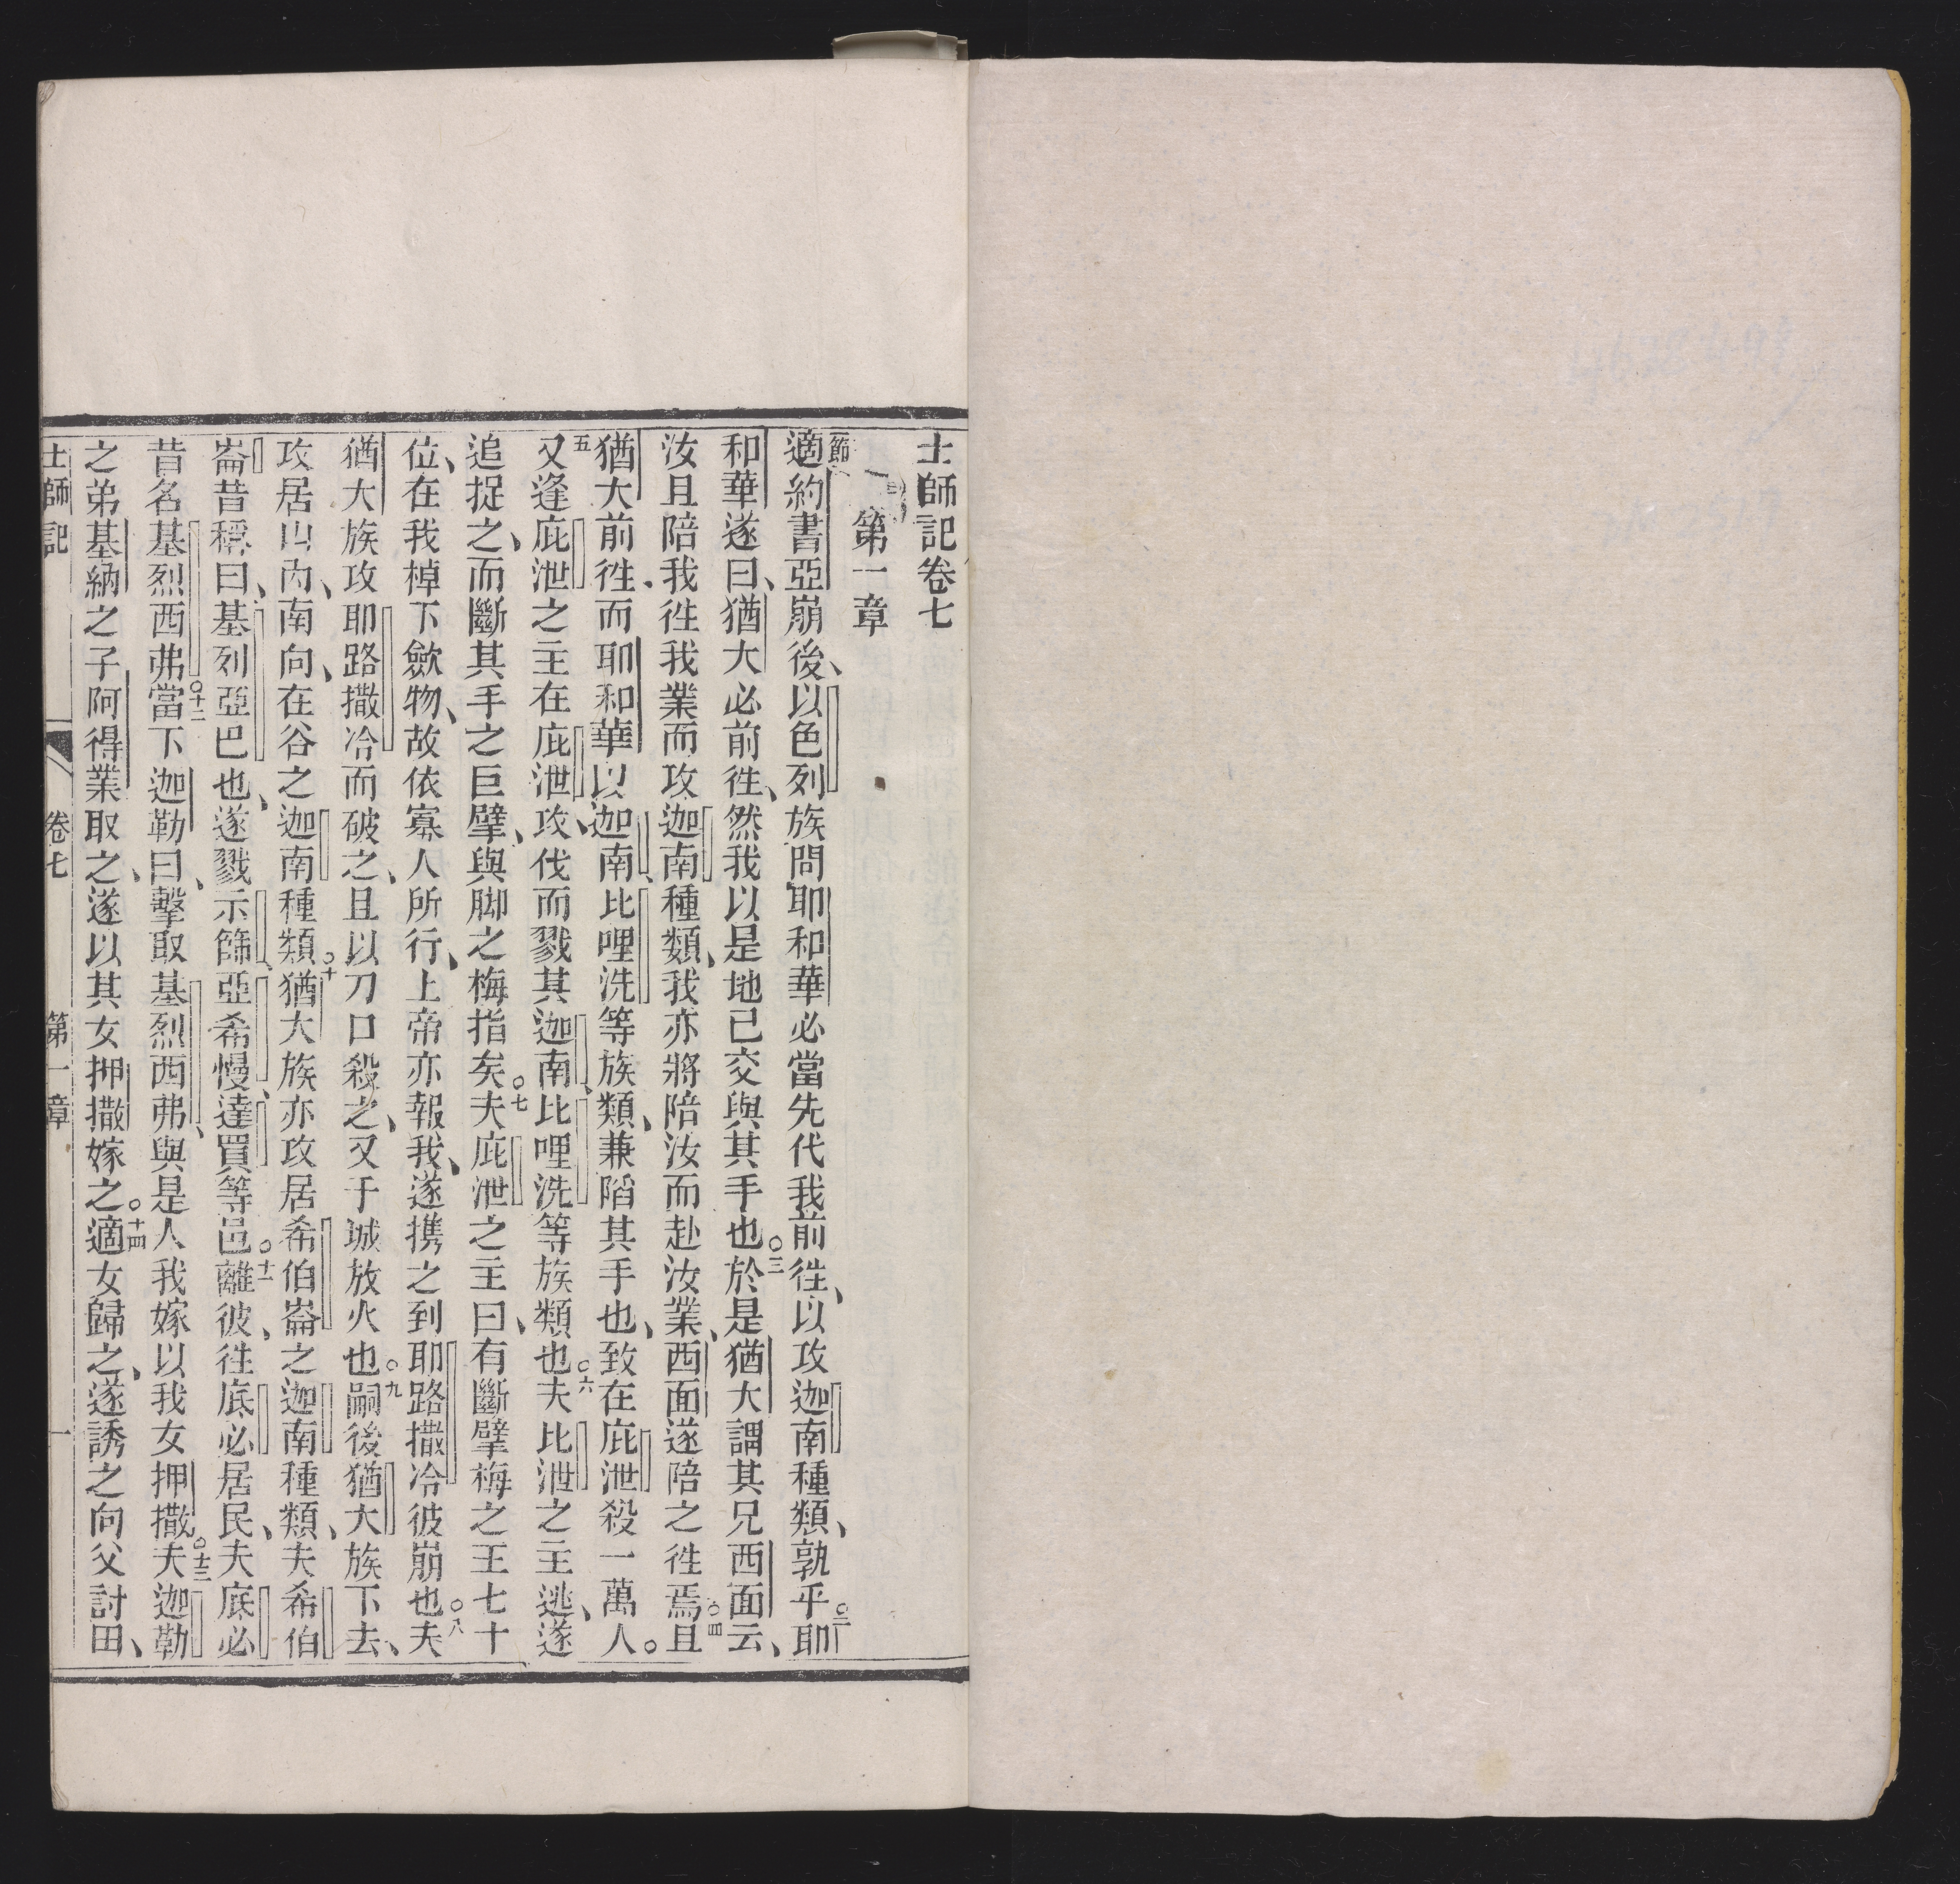 士師記卷七
第一章
適約書亞崩後、以色列族問耶和華必當先代我前徃、以攻迦南種類、孰乎○二耶
和華遂曰、猶大必前徃、然我以是地已交與其手也○三於是猶大謂其兄西面云、
汝且陪我徃我業而攻迦南種類、我亦將陪汝而赴汝業、西面遂陪之徃焉○四且
猶大前徃、而耶和華以迦南、比哩洗等族類、兼陷其手也、致在庇泄殺一萬人。
五又逢庇泄之主在庇泄、攻伐而戮其迦南、比哩洗等族類也○六夫比泄之主逃、遂
追捉之、而斷其手之巨擘、與脚之梅指矣○七夫庇泄之主曰、有斷擘梅之王七十
位、在我棹下歛物、故依寡人所行、上帝亦報我、遂携之到耶路撒冷彼崩也○八夫
猶大族攻耶路撒冷而破之、且以刀口殺之、又于城放火也○九嗣後猶大族下去、
攻居山內、南向、在谷之迦南種類○十猶大族亦攻居希伯崙之迦南種類、夫希伯
崙昔稱曰、基列亞巴也、遂戮示篩、亞希慢、達買等邑○十一離彼、徃底必居民、夫底必
昔名基烈西弗○十二當下迦勒曰、擊取基烈西弗、與是人我嫁以我女押撒○十三夫迦勒
之弟基納之子阿得業取之、遂以其女押撒嫁之○十四適女歸之、遂誘之向父討田、
士師記 卷七 第一章 一